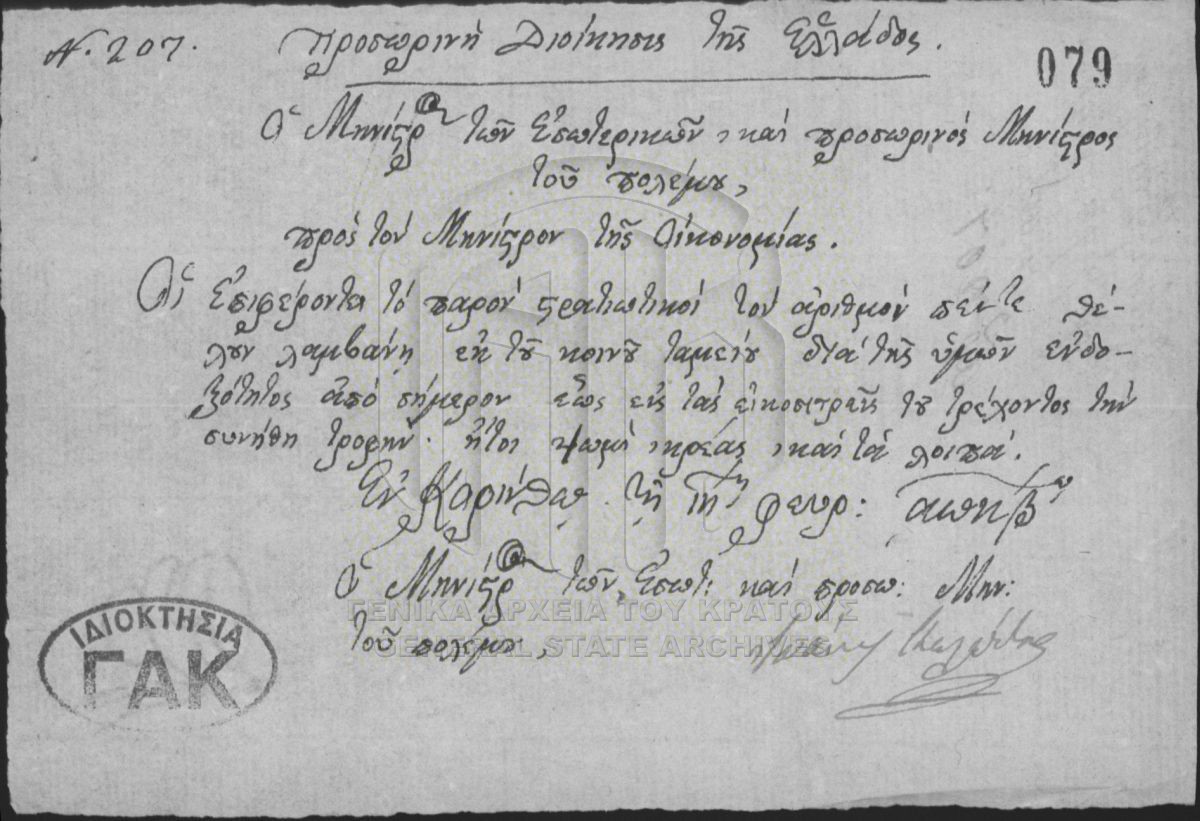 Ν. 207.
Προσωρινὴ Διοίκησις τῆς Ἑλλάδος.
079
Ὁ Μηνίστρος τῶν Ἐσωτερικῶν, καὶ προσωρινὸς Μηνίστρος
τοῦ πολέμου,
πρὸς τὸν Μηνίστρον τῆς Οἰκονομίας.
Οἱ ἐπιφέροντες τὸ παρὸν στρατιωτικοὶ τὸν ἀριθμὸν πέντε θέ-
λουν λαμβάνῃ ἐκ τοῦ κοινοῦ ταμείου διὰ τῆς ὑμῶν ἐνδο-
ξότητος ἀπὸ σήμερον ἕως εἰς τὰς εἰκοσιτρεῖς τοῦ τρέχοντος τὴν
συνήθη τροφήν. ἤτοι ψωμί, κρέας, καὶ τὰ λοιπά.
Ἐν Κορίνθῳ τῇ ιηῃ φευρ: αωκβῳ
Ὁ Μηνίστρος τῶν Ἐσωτ: καὶ προσω: Μην:
τοῦ πολέμου,
Ἰωάννης Κωλέττης
ΙΔΙΟΚΤΗΣΙΑ
ΓΑΚ
ΓΕΝΙΚΑ ΑΡΧΕΙΑ ΤΟΥ ΚΡΑΤΟΥΣ
GENERAL STATE ARCHIVES